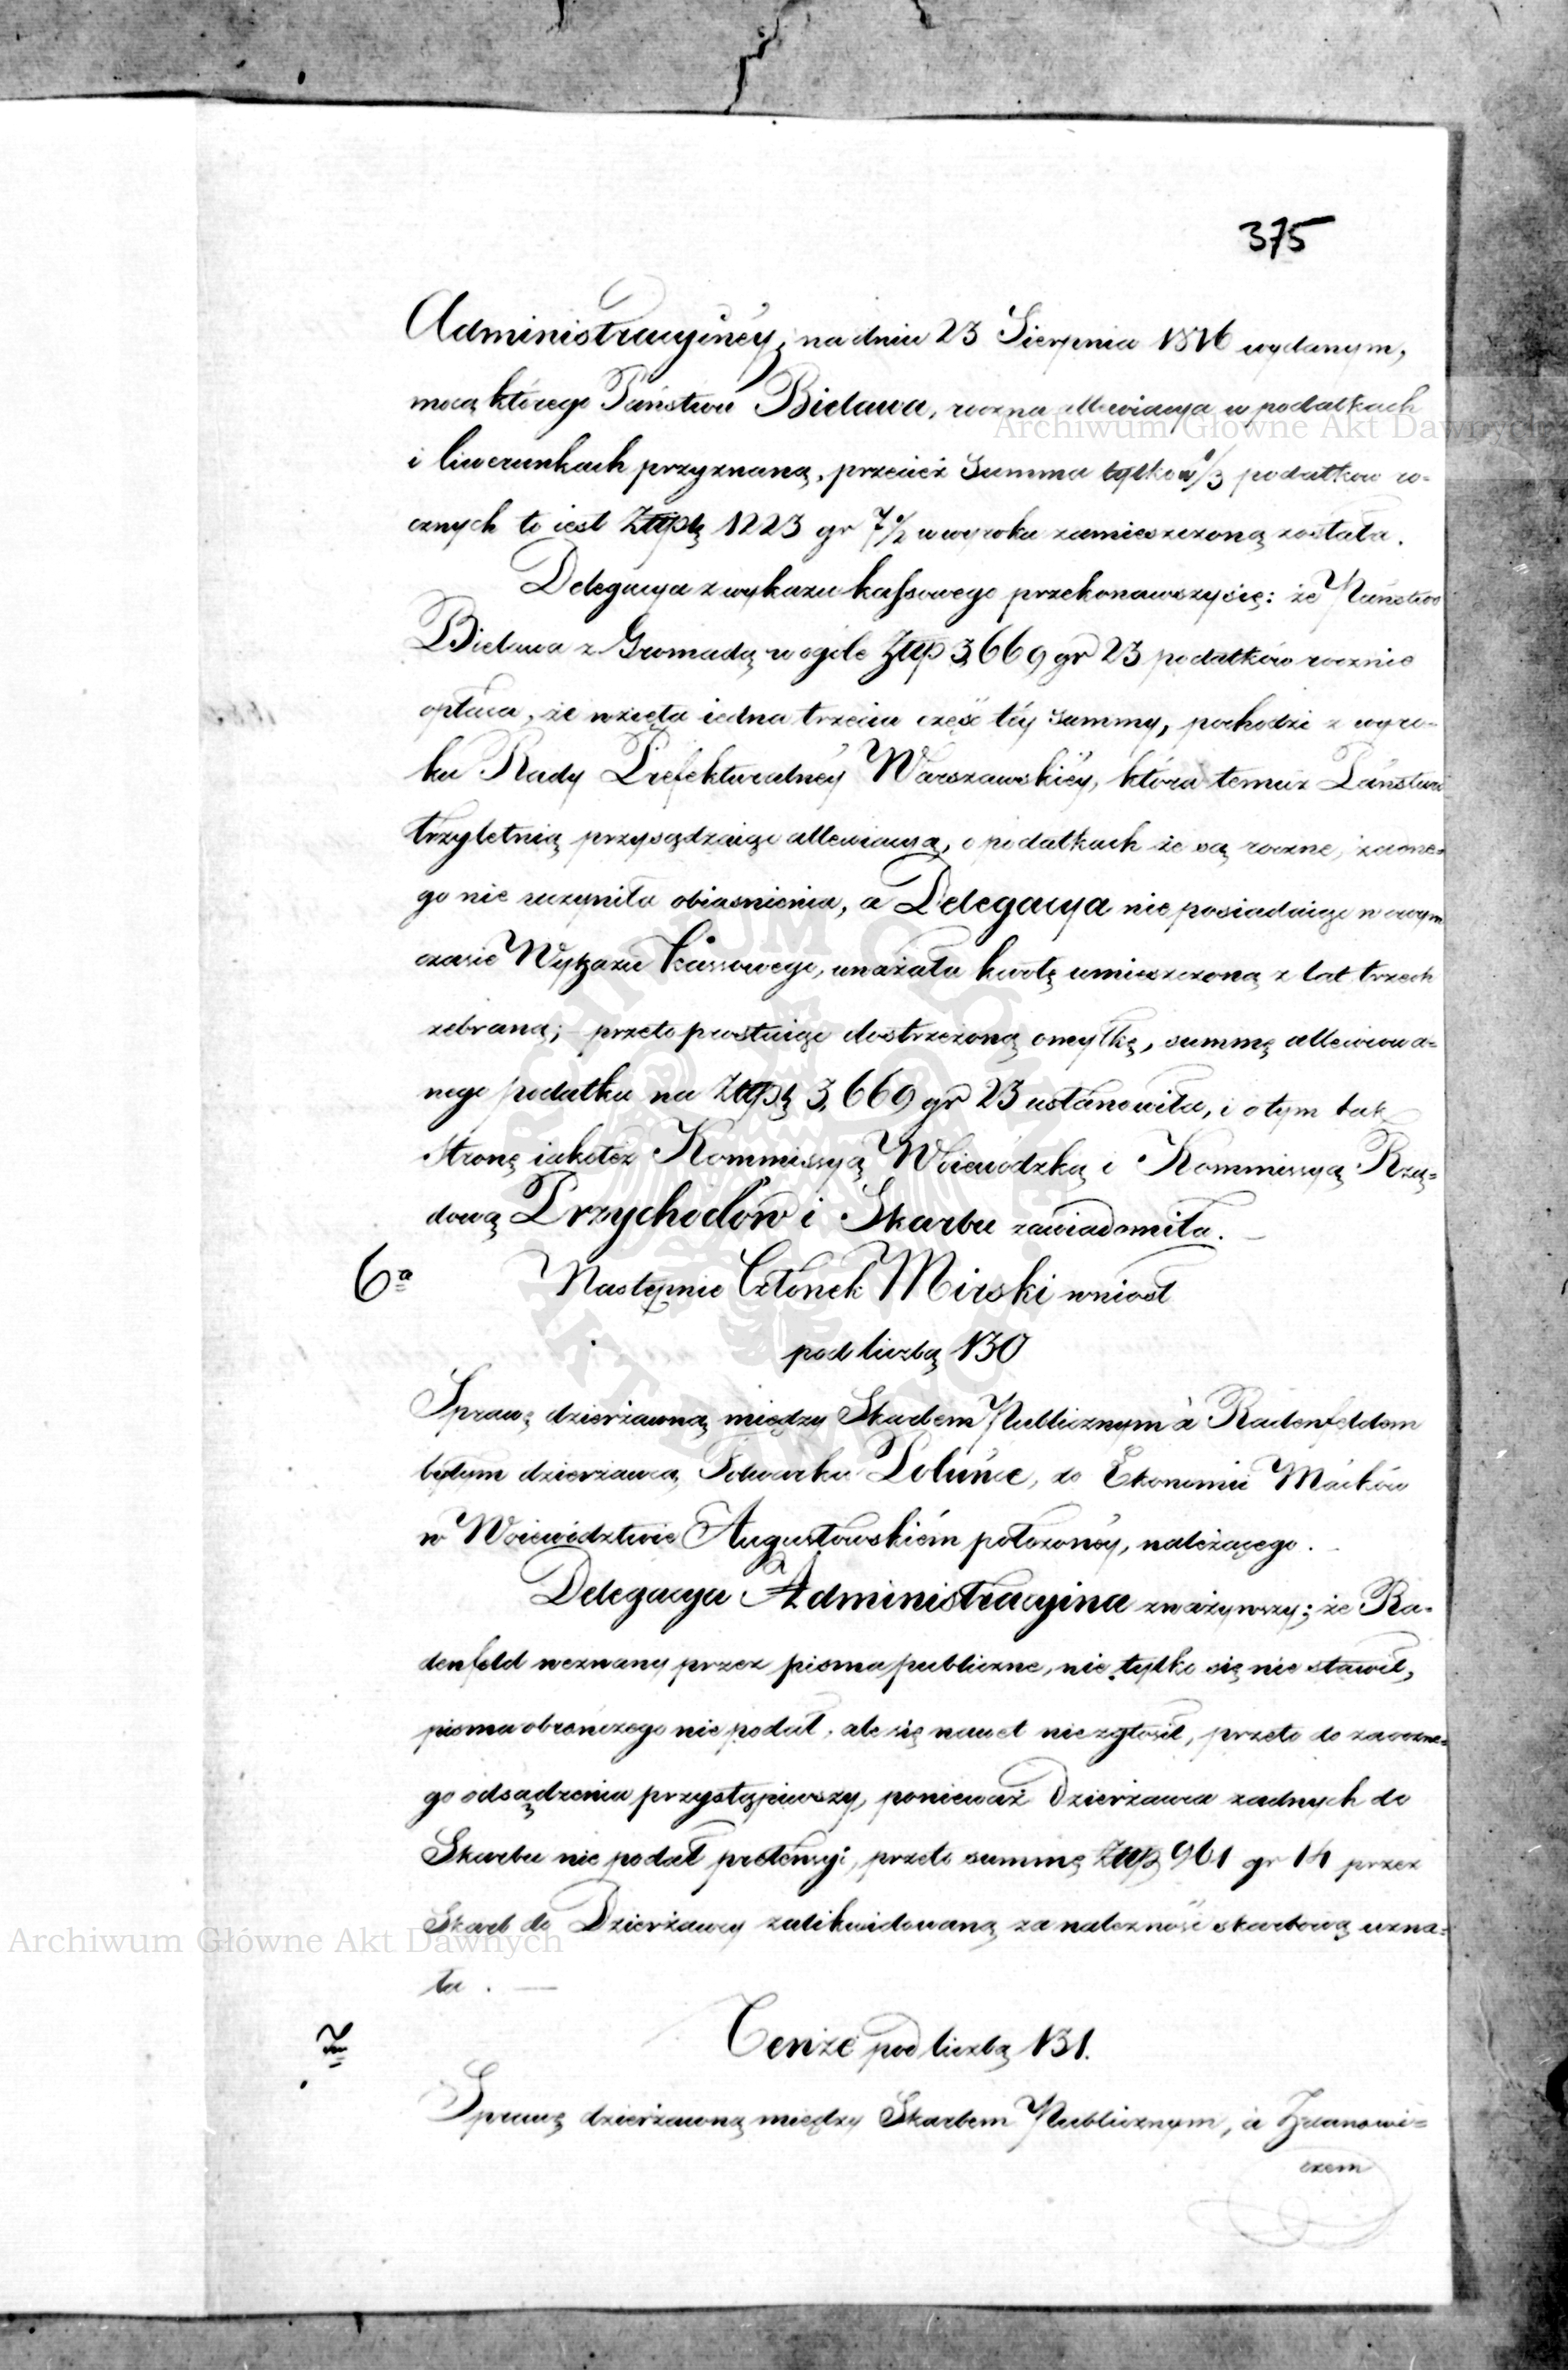 375
Administracyiney, na dniu 23 Sierpnia 1816 wydanym,
mocą którego Państwu Bielawa, roczna allewiacya w podatkach
i liwerunkach przyznaną, przecież Summa tylko w 1/3 podatków ro-
cznych to iest Złtp 1223 gr 7 1/2 w wyroku zamieszczoną została.
Delegacya z wykazu kassowego przekonawszy się: że Państwo
Bielawa z Gromadą w ogóle Złtp 3,669 gr 23 podatków rocznie
opłaca, że wzięta iedna trzecia część téy Summy, pochodzi z wyro-
ku Rady Prefekturalnéy Warszawskiéy, która temuż Państwu
trzyletnią przysądzaiąc allewiacyą, o podatkach że są roczne, żadne-
go nie uczyniła obiasnienia, a Delegacya nie posiadaiąc w owym
czasie Wykazu Kassowego, uważała kwotę umieszczoną z lat trzech
zebraną; przeto prostuiąc dostrzeżoną omyłkę, summę allewiowa-
nego podatku na Złtp 3,669 gr 23 ustanowiła, i o tym tak
Stronę iakoteż Kommissyą Woiewódzką i Kommissyą Rzą-
dową Przychodów i Skarbu zawiadomiła.
6a Następnie Członek Mirski wniósł
pod liczbą 130
Sprawę dzierżawną między Skarbem Publicznym à Radenfeldem
byłym dzierżawcą Folwarku Poluńce, do Ekonomii Maćków
w Woiewództwie Augustowskiém położonéy, należącego.
Delegacya Administracyina zważywszy; że Ra-
denfeld wezwany przez pisma publiczne, nie tylko się nie stawił,
pisma obrończego nie podał, ale się nawet nie zgłosił, przeto do zaoczne-
go odsądzenia przystąpiwszy, ponieważ Dzierżawca żadnych do
Skarbu nie podał pretensyi, przeto summę Złtp 961 gr 14 przez
Skarb do Dzierżawcy zalikwidowaną za należność skarbową uzna-
ła. —
7ma Tenże pod liczbą 131.
Sprawę dzierżawną między Skarbem Publicznym, à Zdanowi-
czem
Archiwum Główne Akt Dawnych
Archiwum Główne Akt Dawnych